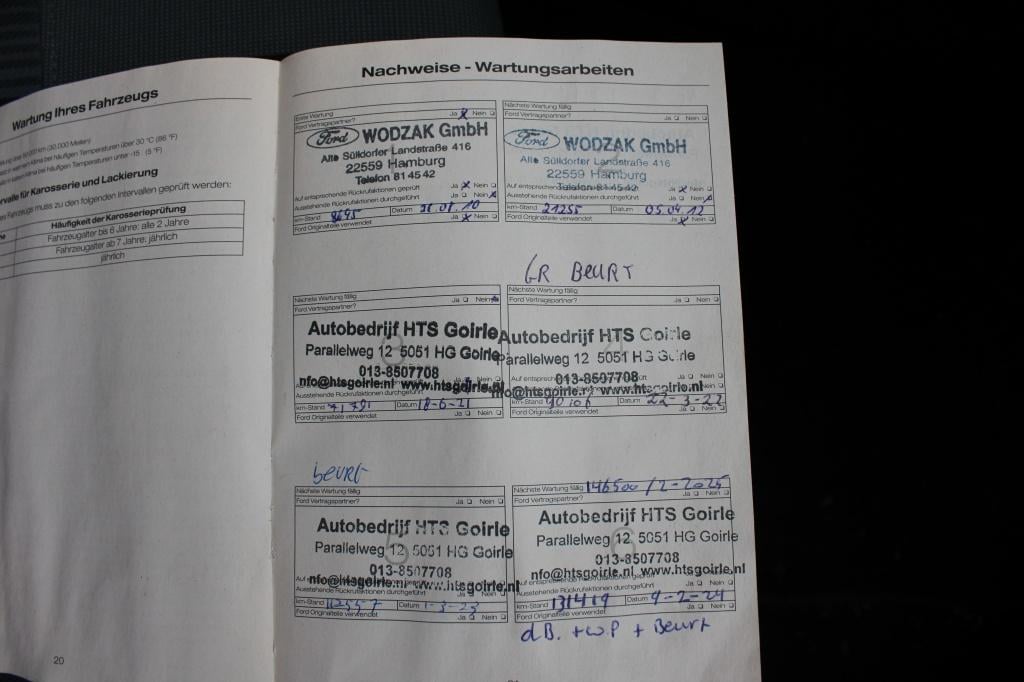 Wartung Ihres Fahrzeugs
(30.000 Meilen)
bei häufigen Temperaturen über 30 °C (86 °F)
bei häufigen Temperaturen unter -15 (5 °F)
für Karosserie und Lackierung
Fahrzeugs muss zu den folgenden Intervallen geprüft werden:
Häufigkeit der Karosserieprüfung
Fahrzeugalter bis 6 Jahre: alle 2 Jahre
Fahrzeugalter ab 7 Jahre: jährlich
jährlich
20
Nachweise - Wartungsarbeiten
Erste Wartung Ja Nein
Ford Vertragspartner?
Ford WODZAK GmbH
Alte Sülldorfer Landstraße 416
22559 Hamburg
Telefon 81 45 42
Auf entsprechende Rückrufaktionen geprüft Ja Nein
Ausstehende Rückrufaktionen durchgeführt Ja Nein
km-Stand Datum
Ford Originalteile verwendet Ja Nein
Nächste Wartung fällig
Ford Vertragspartner? Ja Nein
Ford WODZAK GmbH
Alte Sülldorfer Landstraße 416
22559 Hamburg
Telefon 81 45 42
Auf entsprechende Ja Nein
Ausstehende Rückrufaktionen durchgeführt Ja Nein
km-Stand 21255 Datum 05.04.12
Ford Originalteile verwendet Ja Nein
Nächste Wartung fällig Ja Nein
Ford Vertragspartner?
Autobedrijf HTS Goirle
Parallelweg 12 5051 HG Goirle
013-8507708
nfo@htsgoirle.nl www.htsgoirle.nl
Ausstehende Rückrufaktionen durchgeführt Ja Nein
km-Stand 71791 Datum 18-6-21
Ford Originalteile verwendet Ja Nein
GR BEURT
Nächste Wartung fällig
Ford Vertragspartner? Ja Nein
Autobedrijf HTS Goirle
Parallelweg 12 5051 HG Goirle
013-8507708
www.htsgoirle.nl
km-Stand Datum 22-3-22
Ford Originalteile verwendet Ja Nein
beurt
Nächste Wartung fällig
Ford Vertragspartner? Ja Nein
Autobedrijf HTS Goirle
Parallelweg 12 5051 HG Goirle
013-8507708
nfo@htsgoirle.nl www.htsgoirle.nl
Ausstehende Rückrufaktionen durchgeführt Ja Nein
km-Stand 112557 Datum 1-3-23
Ford Originalteile verwendet Ja Nein
Nächste Wartung fällig 146500 / 2-2025
Ford Vertragspartner? Ja Nein
Autobedrijf HTS Goirle
Parallelweg 12 5051 HG Goirle
013-8507708
nfo@htsgoirle.nl www.htsgoirle.nl
Ausstehende Rückrufaktionen durchgeführt Ja Nein
km-Stand 131419 Datum 9-2-24
Ford Originalteile verwendet Ja Nein
d.B. + w.P + Beurt